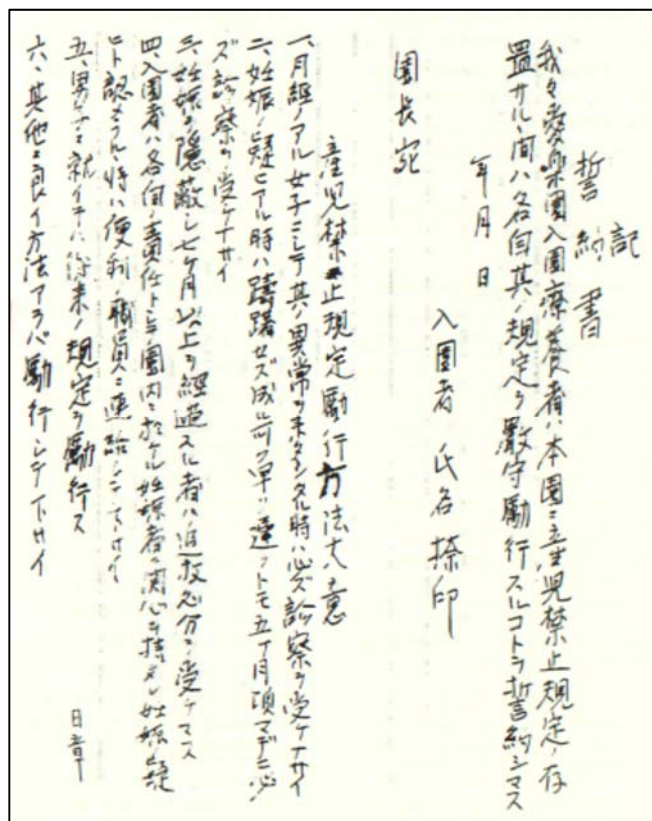 記
誓約書
我々愛楽園入園療養者ハ本園ニ産児禁止規定ノ存
置サルヽ間ハ各自其ノ規定ヲ厳守励行スルコトヲ誓約シマス
年月日
入園者 氏名 捺印
園長宛
産児禁止規定励行方法大意
一、月経ノアル女子ニシテ其ノ異常ヲ来タシタル時ハ必ズ診察ヲ受ケナサイ
二、妊娠ノ疑ヒアル時ハ躊躇セズ成ル可ク早ク遅クトモ五ヶ月頃マデニ必
ズ診察ヲ受ケナサイ
三、妊娠ヲ隠蔽シ七ケ月以上ヲ経過スル者ハ退放処分ヲ受ケマス
四、入園者ハ各自ノ責任トシテ園内ニ於ケル妊娠者ニ関心ヲ持タレ妊娠ノ疑
ヒト認メラルヽ時ハ便利ノ職員ニ連絡シテ下サイ
五、男女ニ就イテハ従来ノ規定ヲ励行ス
日章
六、其他ニ良イ方法アラバ励行シテ下サイ